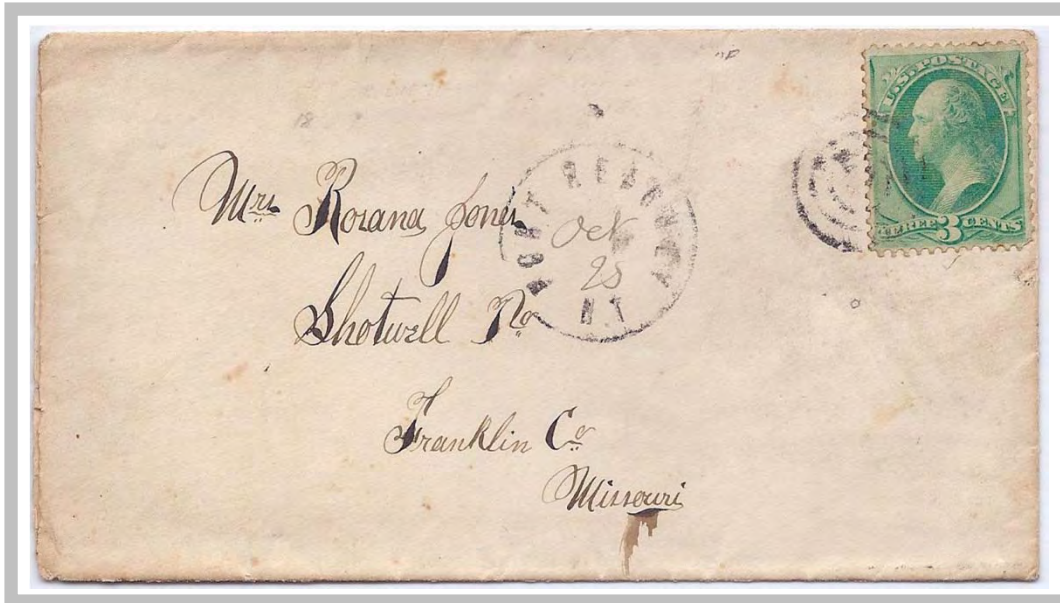 U.S. POSTAGE
THREE 3 CENTS
FORT
Oct
25
Mrs Rozana Jones
Shotwell Po
Franklin Co
Missouri